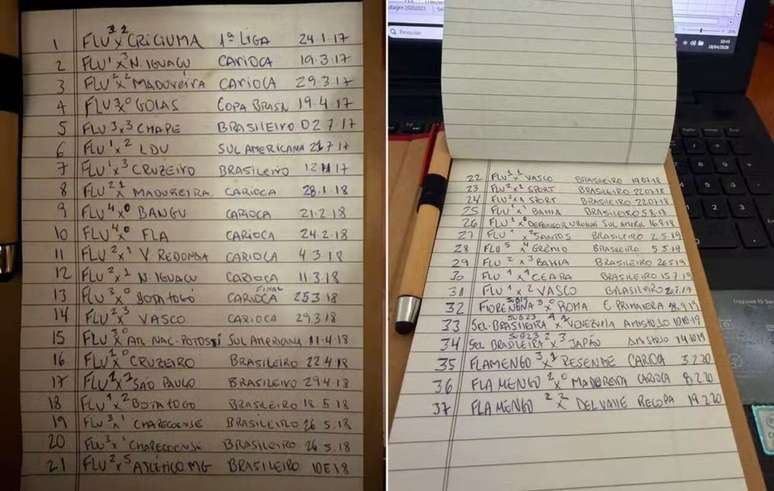 1 FLU 3x2 CRICIUMA 1ª LIGA 24.1.17
2 FLU 1x N. IGUAÇU CARIOCA 19.3.17
3 FLU 2x2 MADUREIRA CARIOCA 29.3.17
4 FLU 3x0 GOIAS COPA BRASIL 19.4.17
5 FLU 3x3 CHAPE BRASILEIRO 02.7.17
6 FLU 1x2 LDU SULAMERICANA 21.7.17
7 FLU 1x3 CRUZEIRO BRASILEIRO 12.11.17
8 FLU 2x1 MADUREIRA CARIOCA 28.1.18
9 FLU 4x0 BANGU CARIOCA 21.2.18
10 FLU 4x0 FLA CARIOCA 24.2.18
11 FLU 2x1 V REDONDA CARIOCA 4.3.18
12 FLU 2x1 N. IGUAÇU CARIOCA 11.3.18
13 FLU 3x0 BOTAFOGO CARIOCA FINAL 25.3.18
14 FLU 2x3 VASCO CARIOCA 29.3.18
15 FLU 3x0 AT. NAC. POTOSSÍ SUL AMERICANA 11.4.18
16 FLU 1x0 CRUZEIRO BRASILEIRO 22.4.18
17 FLU 1x2 SAO PAULO BRASILEIRO 29.4.18
18 FLU 1x2 BOTAFOGO BRASILEIRO 18.5.18
19 FLU 3x1 CHAPECOENSE BRASILEIRO 26.5.18
20 FLU 3x1 CHAPECOENSE BRASILEIRO 26.5.18
21 FLU 2x5 ATLÉTICO MG BRASILEIRO 10.6.18
Pesquisar
22 FLU 1x1 VASCO BRASILEIRO 19.07.18
23 FLU 2x1 SPORT BRASILEIRO 22.07.18
24 FLU x SPORT BRASILEIRO 22.07.18
25 FLU 1x1 BAHIA BRASILEIRO 5.8.18
26 FLU x0 DEFENSOR SUL AMER. 16.8.18
27 FLU x SANTOS BRASILEIRO 2.5.19
28 FLU 5x4 GRÊMIO BRASILEIRO 5.5.19
29 FLU 2x3 BAHIA BRASILEIRO 26.5.19
30 FLU 1x1 CEARA BRASILEIRO 15.7.19
31 FLU 1x2 VASCO BRASILEIRO 20.7.19
32 FIORENTINA SUB19 3x0 ROMA C PRIMAVERA 18.9.19
33 SEL. BRASILEIRA SUB23 x1 VENEZUELA AMISTOSO 10.10.19
34 SEL BRASILEIRA SUB23 2x3 JAPÃO AMISTOSO 14.10.19
35 FLAMENGO 3x1 RESENDE CARIOCA 3.2.20
36 FLAMENGO 2x0 MADUREIRA CARIOCA 8.2.20
37 FLAMENGO 2x2 DEL VALLE RECOPA 19.2.20